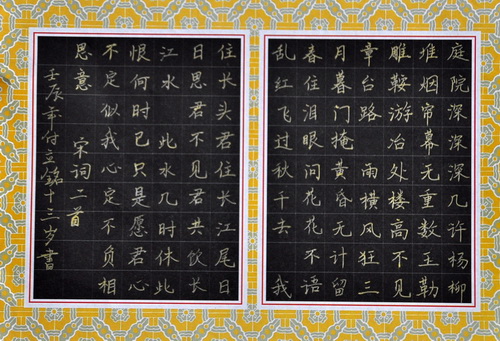 庭院深深深几许杨柳
堆烟帘幕无重数玉勒
雕鞍游冶处楼高不见
章台路 雨横风狂三
月暮门掩黄昏无计留
春住泪眼问花花不语
乱红飞过秋千去 我
住长头君住长江尾日
日思君不见君共饮长
江水 此水几时休此
恨何时已只是愿君心
不定似我心定不负相
思意 宋词二首
壬辰年付立铭十三岁书